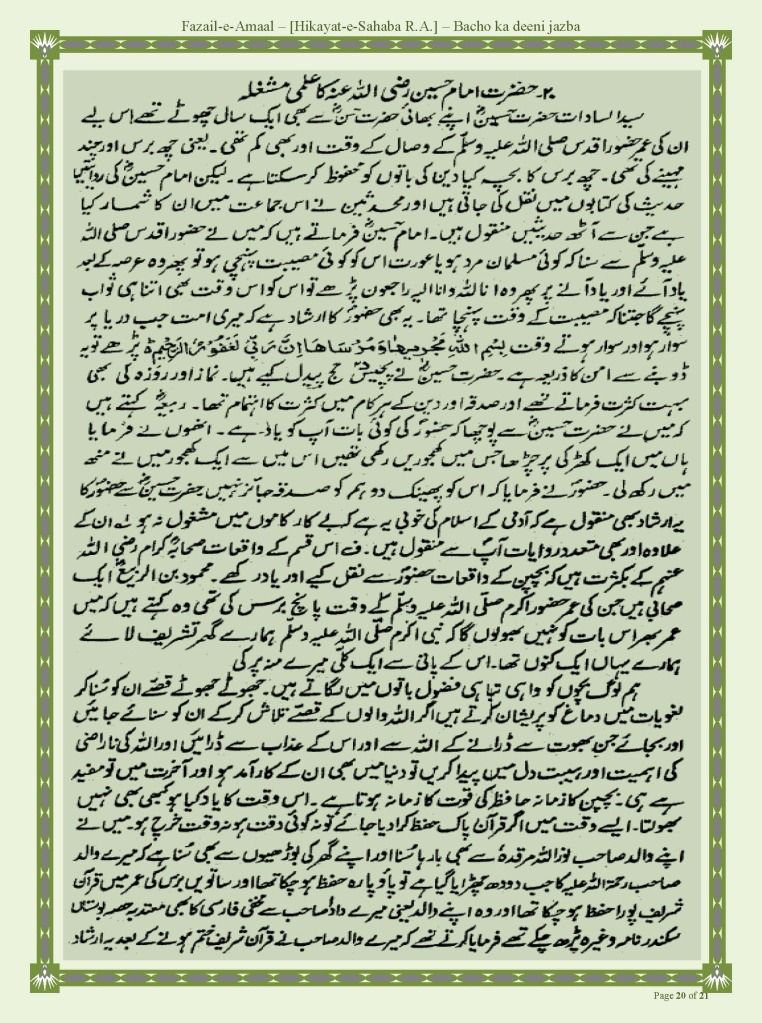 Fazail-e-Amaal – [Hikayat-e-Sahaba R.A.] – Bacho ka deeni jazba
۲۰۔ حضرت امام حسین رضی اللہ عنہ کا علمی مشغلہ
سید السادات حضرت حسینؓ اپنے بھائی حضرت حسنؓ سے بھی ایک سال چھوٹے تھے اس لیے
ان کی عمر حضور اقدس صلی اللہ علیہ وسلم کے وصال کے وقت اور بھی کم تھی۔ یعنی چھ برس اور چند
مہینے کی تھی۔ چھ برس کا بچہ کیا دین کی باتوں کو محفوظ کر سکتا ہے۔ لیکن امام حسینؓ کی روایتیں
حدیث کی کتابوں میں نقل کی جاتی ہیں اور محدثین نے اس جماعت میں ان کا شمار کیا
ہے جن سے آٹھ حدیثیں منقول ہیں۔ امام حسینؓ فرماتے ہیں کہ میں نے حضور اقدس صلی اللہ
علیہ وسلم سے سنا کہ کوئی مسلمان مرد ہو یا عورت اس کو کوئی مصیبت پہنچی ہو تو پھر وہ عرصہ کے بعد
یاد آئے اور یاد آنے پر پھر وہ انا للہ وانا الیہ راجعون پڑھے تو اس کو اس وقت بھی اتنا ہی ثواب
پہنچے گا جتنا کہ مصیبت کے وقت پہنچا تھا۔ یہ بھی حضورؐ کا ارشاد ہے کہ میری امت جب دریا پر
سوار ہو اور سوار ہوتے وقت بسم اللہ مجریھا ومرساھا ان ربی لغفور الرحیم پڑھے تو یہ
ڈوبنے سے امن کا ذریعہ ہے۔ حضرت حسینؓ نے پچیس حج پیدل کیے ہیں۔ نماز اور روزہ کی بھی
بہت کثرت فرماتے تھے اور صدقہ اور دین کے ہر کام میں کثرت کا اہتمام تھا۔ ربیعہؓ کہتے ہیں
کہ میں نے حضرت حسینؓ سے پوچھا کہ حضورؐ کی کوئی بات آپ کو یاد ہے۔ انھوں نے فرمایا
ہاں میں ایک کھڑکی پر چڑھا جس میں کھجوریں رکھی تھیں اس میں سے ایک کھجور میں نے منھ
میں رکھ لی۔ حضورؐ نے فرمایا کہ اس کو پھینک دو ہم کو صدقہ جائز نہیں حضرت حسینؓ سے حضورؐ کا
یہ ارشاد بھی منقول ہے کہ آدمی کے اسلام کی خوبی یہ ہے کہ بے کار کاموں میں مشغول نہ ہو ان کے
علاوہ اور بھی متعدد روایات آپؓ سے منقول ہیں۔ ف اس قسم کے واقعات صحابہؓ کرام رضی اللہ
عنہم کے بکثرت ہیں کہ بچپن کے واقعات حضورؐ سے نقل کیے اور یاد رکھے۔ محمود بن الربیعؓ ایک
صحابی ہیں جن کی عمر حضور اکرم صلی اللہ علیہ وسلم کے وقت پانچ برس کی تھی وہ کہتے ہیں کہ میں
عمر بھر اس بات کو نہیں بھولوں گا کہ نبی اکرم صلی اللہ علیہ وسلم ہمارے گھر تشریف لائے
ہمارے یہاں ایک کنواں تھا۔ اس کے پانی سے ایک کلی میرے منہ پر کی
ہم لوگ بچوں کو واہی تباہی فضول باتوں میں لگاتے ہیں۔ جھوٹے جھوٹے قصے ان کو سنا کر
لغویات میں دماغ کو پریشان کرتے ہیں اگر اللہ والوں کے قصے تلاش کر کے ان کو سنائے جائیں
اور بجائے جن بھوت سے ڈرانے کے اللہ سے اور اس کے عذاب سے ڈرائیں اور اللہ کی ناراضی
کی اہمیت اور ہیبت دل میں پیدا کریں تو دنیا میں بھی ان کے کارآمد ہو اور آخرت میں تو مفید
ہے ہی۔ بچپن کا زمانہ حافظہ کی قوت کا زمانہ ہوتا ہے۔ اس وقت کا یاد کیا ہو کبھی بھی نہیں
بھولتا۔ ایسے وقت میں اگر قرآن پاک حفظ کرا دیا جائے تو نہ کوئی دقت ہو نہ وقت خرچ ہو۔ میں نے
اپنے والد صاحب نور اللہ مرقدہ سے بھی بارہا سنا اور اپنے گھر کی بوڑھیوں سے بھی سنا ہے کہ میرے والد
صاحب رحمۃ اللہ علیہ کا جب دودھ چھڑایا گیا ہے تو پاؤ پارہ حفظ ہو چکا تھا اور ساتویں برس کی عمر میں قرآن
شریف پورا حفظ ہو چکا تھا اور وہ اپنے والد یعنی میرے دادا صاحب سے مخفی فارسی کا بھی معتد بہ حصہ بوستاں
سکندر نامہ وغیرہ پڑھ چکے تھے فرمایا کرتے تھے کہ میرے والد صاحب نے قرآن شریف ختم ہونے کے بعد یہ ارشاد
Page 20 of 21